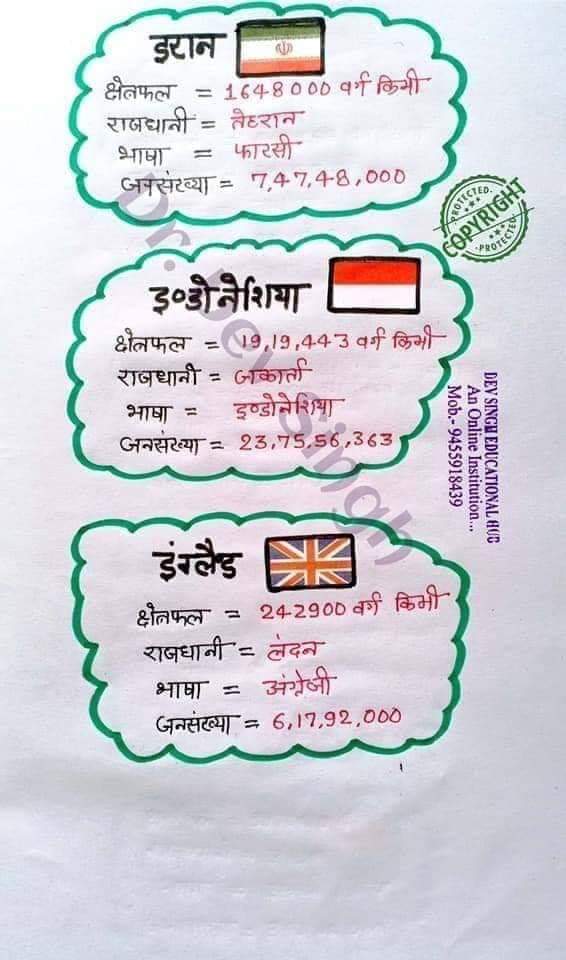 इरान
क्षेत्रफल = 1648000 वर्ग किमी
राजधानी = तेहरान
भाषा = फारसी
जनसंख्या = 7,47,48,000
PROTECTED
COPYRIGHT
PROTECTED
इण्डोनेशिया
क्षेत्रफल = 19,19,443 वर्ग किमी
राजधानी = जकार्ता
भाषा = इण्डोनेशिया
जनसंख्या = 23,75,56,363
DEV SINGH EDUCATIONAL HUB
An Online Institution...
Mob.- 9455918439
Dr. Dev Singh
इंग्लैड
क्षेत्रफल = 242900 वर्ग किमी
राजधानी = लंदन
भाषा = अंग्रेजी
जनसंख्या = 6,17,92,000